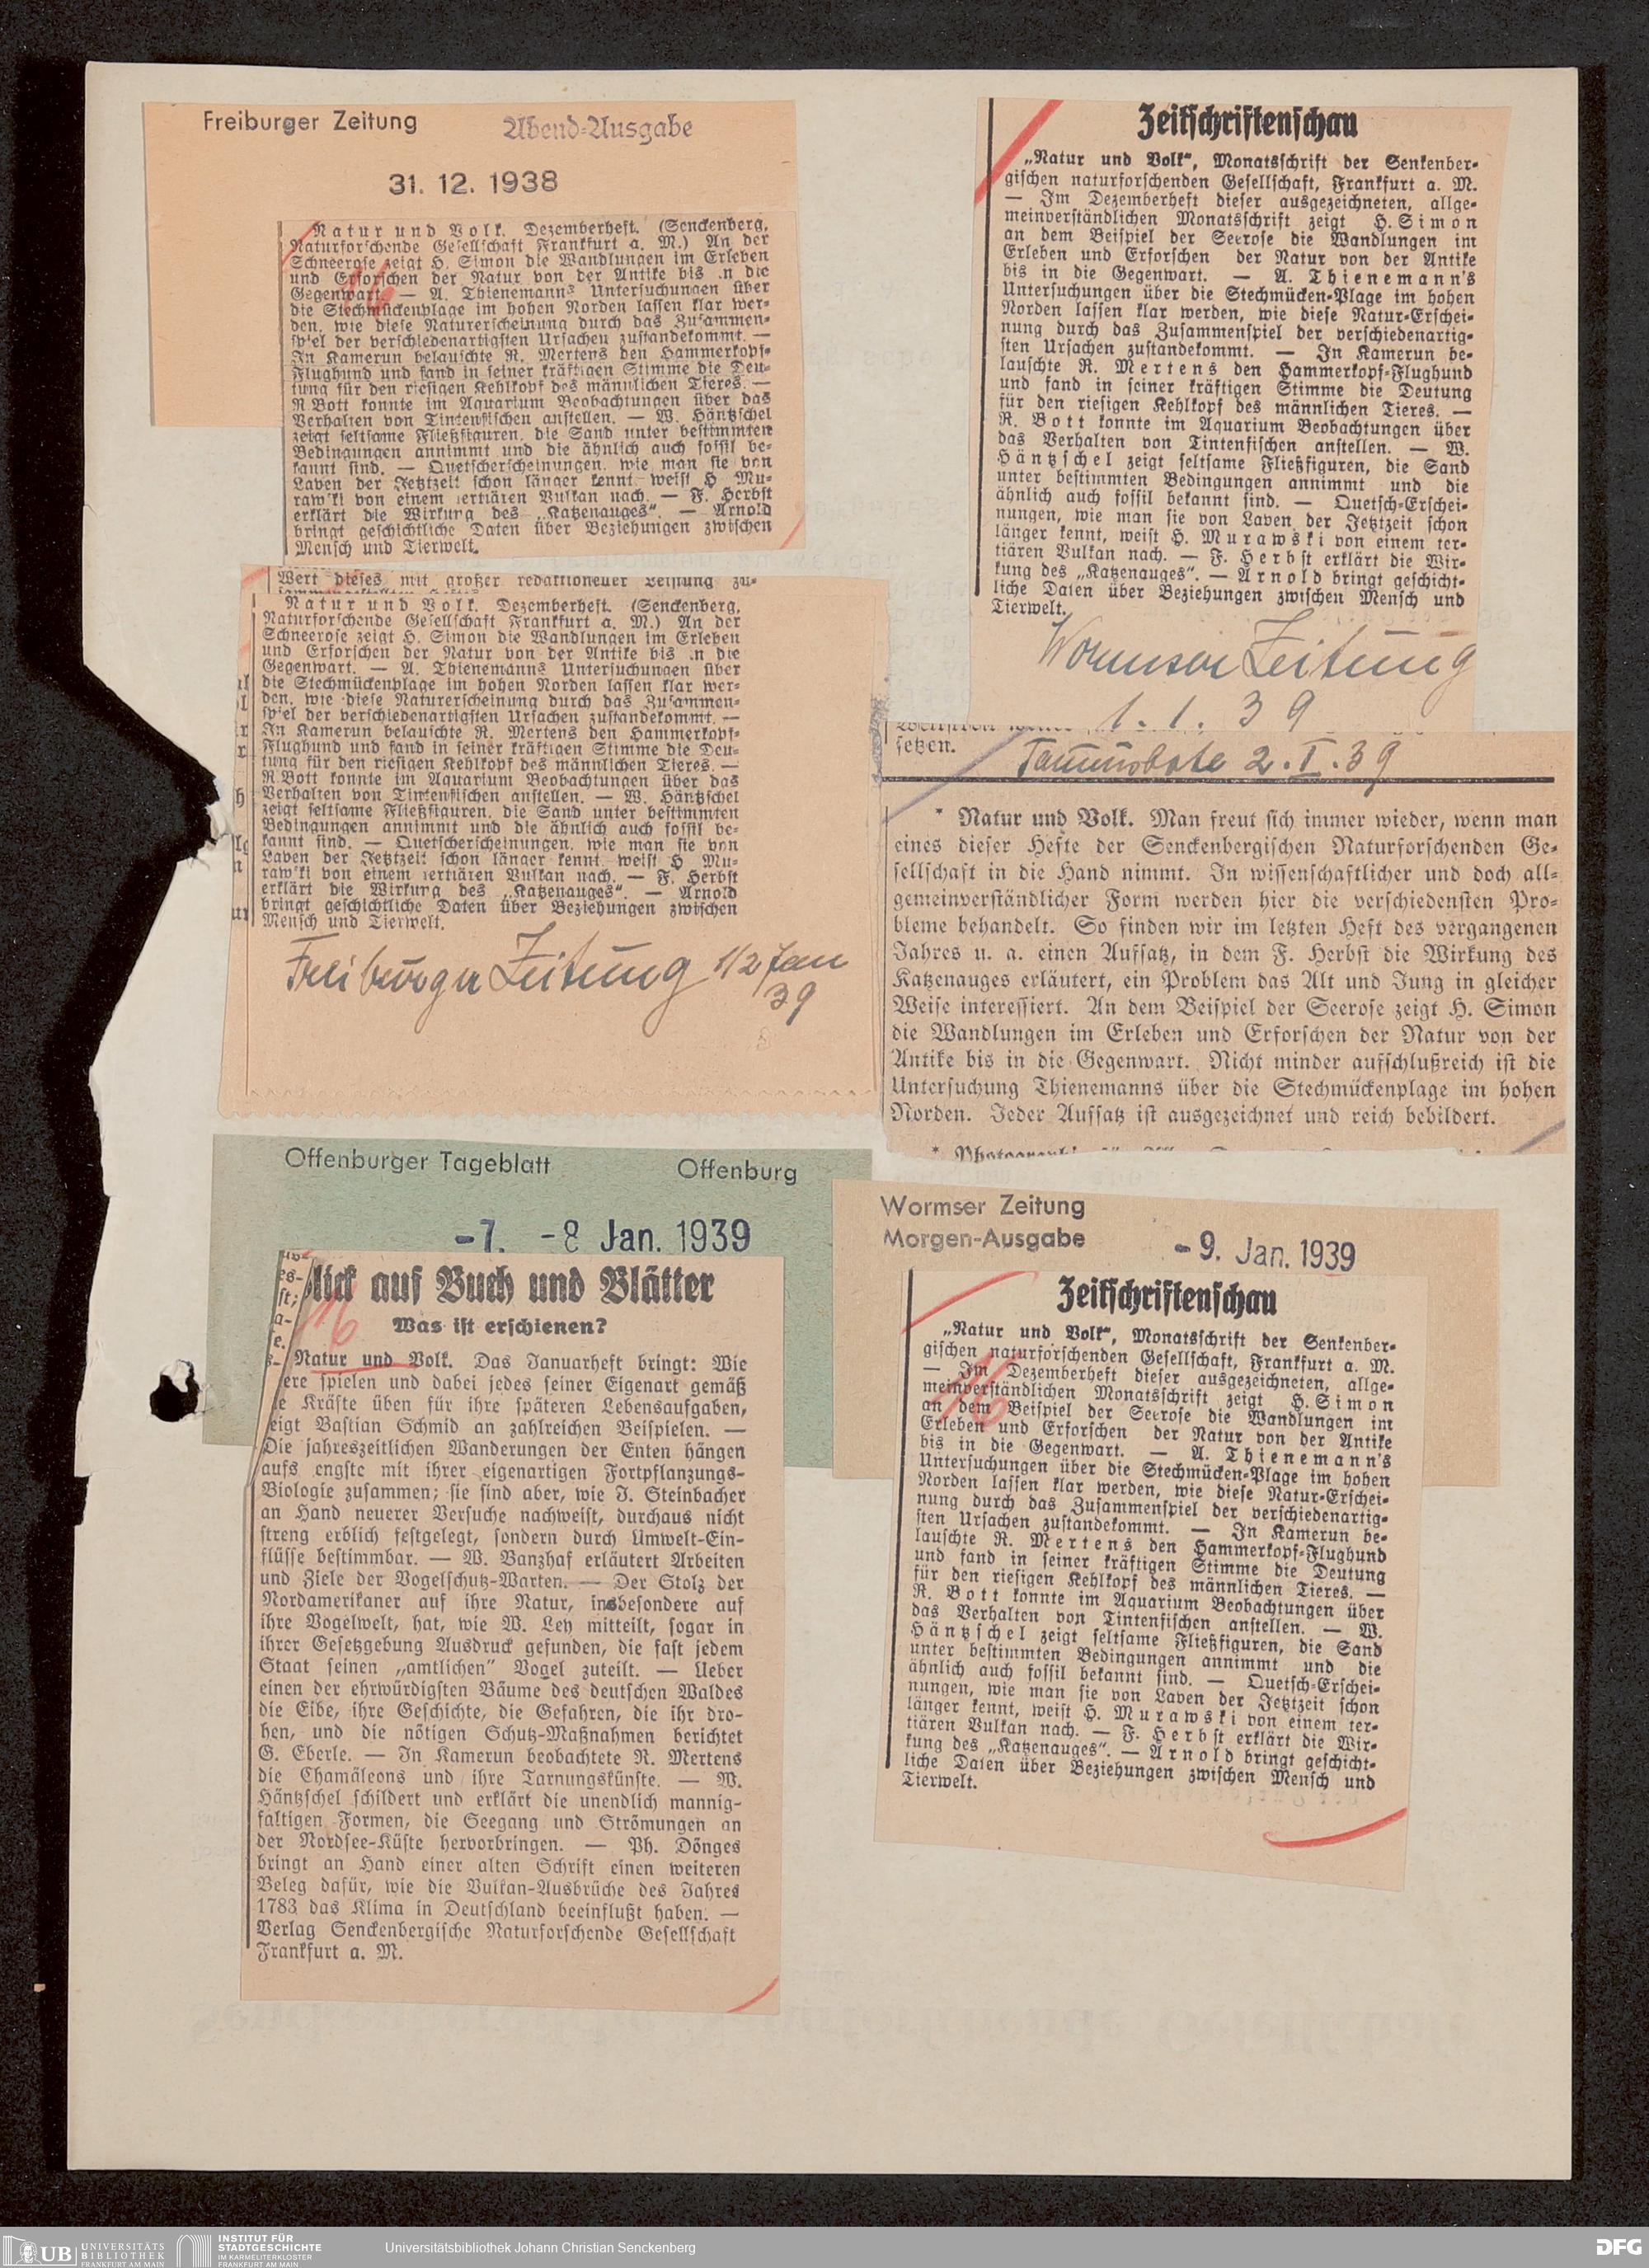 Freiburger Zeitung
Abend-Ausgabe
31. 12. 1938
Natur und Volk. Dezemberheft. (Senckenberg,
Naturforschende Gesellschaft Frankfurt a. M.) An der
Schneerose zeigt H. Simon die Wandlungen im Erleben
und Erforschen der Natur von der Antike bis .n die
Gegenwart. — A. Thienemanns Untersuchungen über
die Stechmückenplage im hohen Norden lassen klar wer-
den, wie diese Naturerscheinung durch das Zusammen-
sp'el der verschiedenartigsten Ursachen zustandekommt. —
In Kamerun belauschte R. Mertens den Hammerkopf-
Flughund und fand in seiner kräftigen Stimme die Deu-
tung für den riesigen Kehlkopf des männlichen Tieres. —
R Bott konnte im Aquarium Beobachtungen über das
Verhalten von Tintenfischen anstellen. — W. Häntzschel
zeigt seltsame Fließfiguren, die Sand unter bestimmten
Bedingungen annimmt und die ähnlich auch fossil be-
kannt sind. — Quetscherscheinungen, wie man sie von
Laven der Jetztzeit schon länger kennt, weist H Mu-
raw'ki von einem tertiären Vulkan nach. — F. Herbst
erklärt die Wirkung des „Katzenauges“. — Arnold
bringt geschichtliche Daten über Beziehungen zwischen
Mensch und Tierwelt.
16
Wert dieses mit großer redaktioneller Leistung zu-
Natur und Volk. Dezemberheft. (Senckenberg,
Naturforschende Gesellschaft Frankfurt a. M.) An der
Schneerose zeigt H. Simon die Wandlungen im Erleben
und Erforschen der Natur von der Antike bis .n die
Gegenwart. — A. Thienemanns Untersuchungen über
die Stechmückenplage im hohen Norden lassen klar wer-
den, wie diese Naturerscheinung durch das Zusammen-
sp'el der verschiedenartigsten Ursachen zustandekommt. —
In Kamerun belauschte R. Mertens den Hammerkopf-
Flughund und fand in seiner kräftigen Stimme die Deu-
tung für den riesigen Kehlkopf des männlichen Tieres. —
R Bott konnte im Aquarium Beobachtungen über das
Verhalten von Tintenfischen anstellen. — W. Häntzschel
zeigt seltsame Fließfiguren, die Sand unter bestimmten
Bedingungen annimmt und die ähnlich auch fossil be-
kannt sind. — Quetscherscheinungen, wie man sie von
Laven der Jetztzeit schon länger kennt, weist H Mu-
raw'ki von einem tertiären Vulkan nach. — F. Herbst
erklärt die Wirkung des „Katzenauges“. — Arnold
bringt geschichtliche Daten über Beziehungen zwischen
Mensch und Tierwelt.
Freiburger Zeitung 1/2 Jan
39
Zeitschriftenschau
„Natur und Volk“, Monatsschrift der Senkenber-
gischen naturforschenden Gesellschaft, Frankfurt a. M.
— Im Dezemberheft dieser ausgezeichneten, allge-
meinverständlichen Monatsschrift zeigt H. Simon
an dem Beispiel der Seerose die Wandlungen im
Erleben und Erforschen der Natur von der Antike
bis in die Gegenwart. — A. Thienemann's
Untersuchungen über die Stechmücken-Plage im hohen
Norden lassen klar werden, wie diese Natur-Erschei-
nung durch das Zusammenspiel der verschiedenartig-
sten Ursachen zustandekommt. — In Kamerun be-
lauschte R. Mertens den Hammerkopf-Flughund
und fand in seiner kräftigen Stimme die Deutung
für den riesigen Kehlkopf des männlichen Tieres. —
R. Bott konnte im Aquarium Beobachtungen über
das Verhalten von Tintenfischen anstellen. — W.
Häntzschel zeigt seltsame Fließfiguren, die Sand
unter bestimmten Bedingungen annimmt und die
ähnlich auch fossil bekannt sind. — Quetsch-Erschei-
nungen, wie man sie von Laven der Jetztzeit schon
länger kennt, weist H. Murawski von einem ter-
tiären Vulkan nach. — F. Herbst erklärt die Wir-
kung des „Katzenauges“. — Arnold bringt geschicht-
liche Daten über Beziehungen zwischen Mensch und
Tierwelt.
Wormser Zeitung
1. 1. 39
setzen.
Taunusbote 2. I. 39
* Natur und Volk. Man freut sich immer wieder, wenn man
eines dieser Hefte der Senckenbergischen Naturforschenden Ge-
sellschaft in die Hand nimmt. In wissenschaftlicher und doch all-
gemeinverständlicher Form werden hier die verschiedensten Pro-
bleme behandelt. So finden wir im letzten Heft des vergangenen
Jahres u. a. einen Aufsatz, in dem F. Herbst die Wirkung des
Katzenauges erläutert, ein Problem das Alt und Jung in gleicher
Weise interessiert. An dem Beispiel der Seerose zeigt H. Simon
die Wandlungen im Erleben und Erforschen der Natur von der
Antike bis in die Gegenwart. Nicht minder aufschlußreich ist die
Untersuchung Thienemanns über die Stechmückenplage im hohen
Norden. Jeder Aufsatz ist ausgezeichnet und reich bebildert.
Offenburger Tageblatt Offenburg
-7. -8 Jan. 1939
lick auf Buch und Blätter
16
Was ist erschienen?
Natur und Volk. Das Januarheft bringt: Wie
ere spielen und dabei jedes seiner Eigenart gemäß
e Kräfte üben für ihre späteren Lebensaufgaben,
eigt Bastian Schmid an zahlreichen Beispielen. —
Die jahreszeitlichen Wanderungen der Enten hängen
aufs engste mit ihrer eigenartigen Fortpflanzungs-
Biologie zusammen; sie sind aber, wie J. Steinbacher
an Hand neuerer Versuche nachweist, durchaus nicht
streng erblich festgelegt, sondern durch Umwelt-Ein-
flüsse bestimmbar. — W. Banzhaf erläutert Arbeiten
und Ziele der Vogelschutz-Warten. — Der Stolz der
Nordamerikaner auf ihre Natur, insbesondere auf
ihre Vogelwelt, hat, wie W. Ley mitteilt, sogar in
ihrer Gesetzgebung Ausdruck gefunden, die fast jedem
Staat seinen „amtlichen“ Vogel zuteilt. — Ueber
einen der ehrwürdigsten Bäume des deutschen Waldes
die Eibe, ihre Geschichte, die Gefahren, die ihr dro-
hen, und die nötigen Schutz-Maßnahmen berichtet
G. Eberle. — In Kamerun beobachtete R. Mertens
die Chamäleons und ihre Tarnungskünste. — W.
Häntzschel schildert und erklärt die unendlich mannig-
faltigen Formen, die Seegang und Strömungen an
der Nordsee-Küste hervorbringen. — Ph. Dönges
bringt an Hand einer alten Schrift einen weiteren
Beleg dafür, wie die Vulkan-Ausbrüche des Jahres
1783 das Klima in Deutschland beeinflußt haben. —
Verlag Senckenbergische Naturforschende Gesellschaft
Frankfurt a. M.
Wormser Zeitung
Morgen-Ausgabe
- 9. Jan. 1939
Zeitschriftenschau
16
„Natur und Volk“, Monatsschrift der Senkenber-
gischen naturforschenden Gesellschaft, Frankfurt a. M.
— Im Dezemberheft dieser ausgezeichneten, allge-
meinverständlichen Monatsschrift zeigt H. Simon
an dem Beispiel der Seerose die Wandlungen im
Erleben und Erforschen der Natur von der Antike
bis in die Gegenwart. — A. Thienemann's
Untersuchungen über die Stechmücken-Plage im hohen
Norden lassen klar werden, wie diese Natur-Erschei-
nung durch das Zusammenspiel der verschiedenartig-
sten Ursachen zustandekommt. — In Kamerun be-
lauschte R. Mertens den Hammerkopf-Flughund
und fand in seiner kräftigen Stimme die Deutung
für den riesigen Kehlkopf des männlichen Tieres. —
R. Bott konnte im Aquarium Beobachtungen über
das Verhalten von Tintenfischen anstellen. — W.
Häntzschel zeigt seltsame Fließfiguren, die Sand
unter bestimmten Bedingungen annimmt und die
ähnlich auch fossil bekannt sind. — Quetsch-Erschei-
nungen, wie man sie von Laven der Jetztzeit schon
länger kennt, weist H. Murawski von einem ter-
tiären Vulkan nach. — F. Herbst erklärt die Wir-
kung des „Katzenauges“. — Arnold bringt geschicht-
liche Daten über Beziehungen zwischen Mensch und
Tierwelt.
UB UNIVERSITÄTS BIBLIOTHEK FRANKFURT AM MAIN
INSTITUT FÜR STADTGESCHICHTE IM KARMELITERKLOSTER FRANKFURT AM MAIN
Universitätsbibliothek Johann Christian Senckenberg
DFG